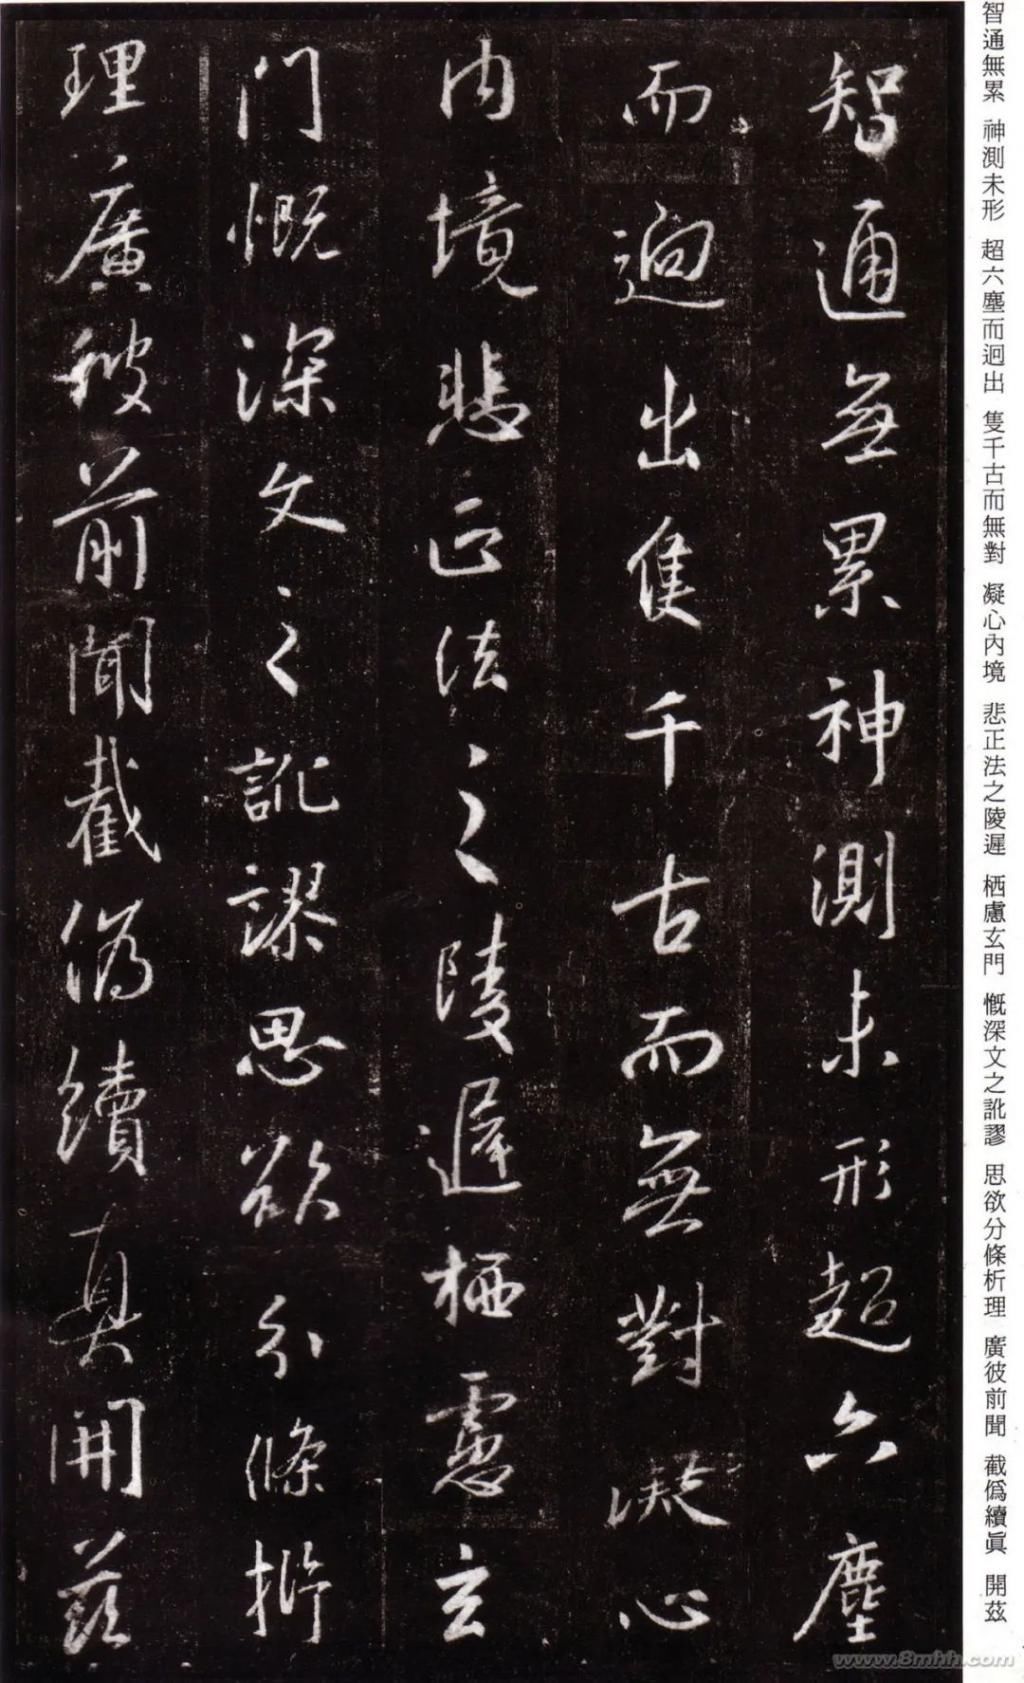 智通無累 神測未形 超六塵而迥出 隻千古而無對 凝心內境 悲正法之陵遲 栖慮玄門 慨深文之訛謬 思欲分條析理 廣彼前聞 截僞續眞 開茲
智通無累神測未形超六塵
而迥出隻千古而無對凝心
内境悲正法之陵遲栖慮玄
門慨深文之訛謬思欲分條析
理廣彼前聞截偽續真開茲
www.8mhh.com